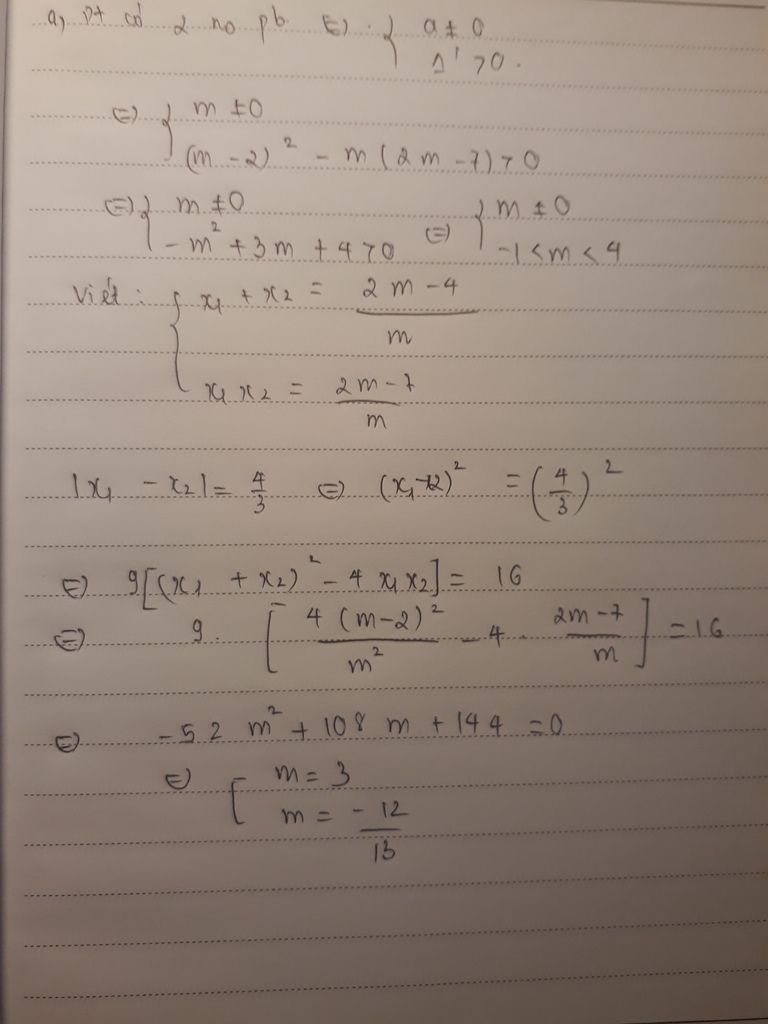 a, pt có 2 no pb ⇔ { a ≠ 0
Δ' > 0.
⇔ { m ≠ 0
(m - 2)² - m (2m - 7) > 0
⇔ { m ≠ 0
- m² + 3m + 4 > 0 ⇔ { m ≠ 0
-1 < m < 4
Viét : { x₁ + x₂ = (2m - 4)/m
x₁ x₂ = (2m - 7)/m
|x₁ - x₂| = 4/3 ⇔ (x₁ - x₂)² = (4/3)²
⇔ 9[(x₁ + x₂)² - 4 x₁ x₂] = 16
⇔ 9 . [4 (m - 2)²/m² - 4 . (2m - 7)/m] = 16
⇔ - 52 m² + 108 m + 144 = 0
⇔ [ m = 3
m = - 12/13